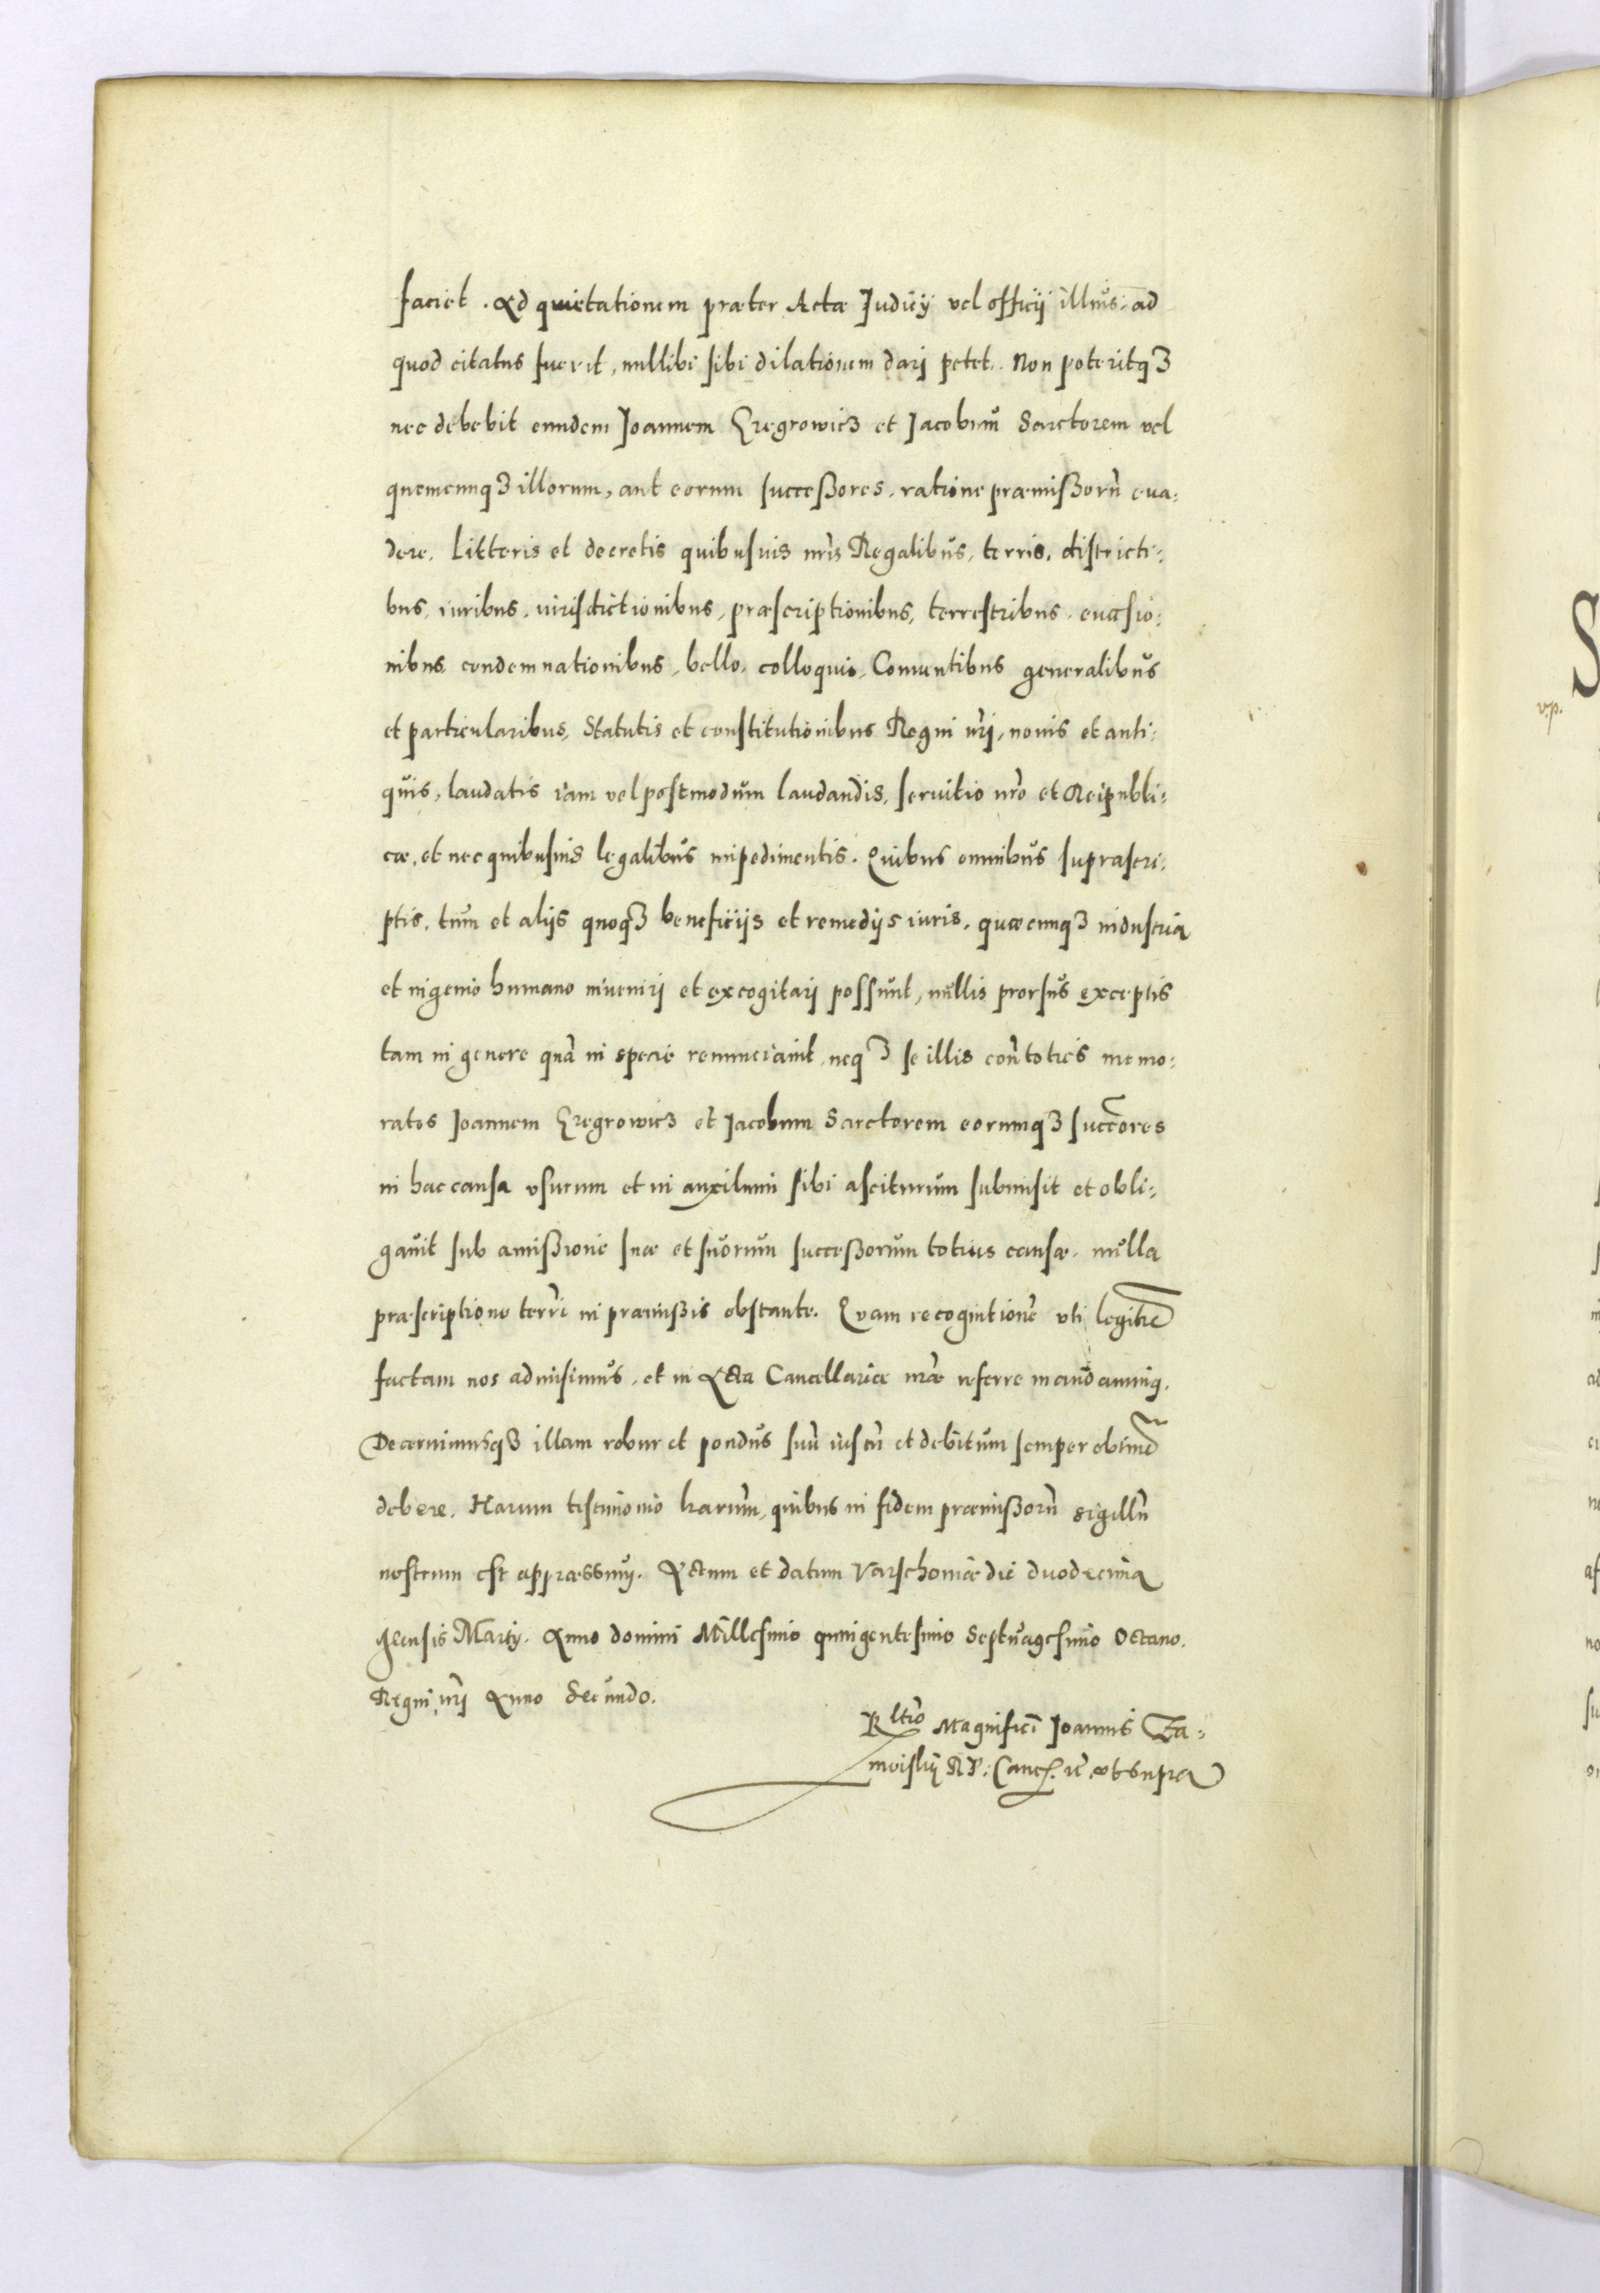 faciet. Ad quietationem praeter Acta Judicÿ vel officij illius, ad
quod citatus fuerit, nullibi sibi dilationem dari petet. Non poteritqꝫ
nec debebit eundem Joannem Gregrowicz et Jacobum Sartorem vel
quemcunqꝫ illorum, aut eorum successores, ratione praemissorũ eva-
dere. Litteris et decretis quibusuis nris Regalibus, terris, districti-
bus, iuribus, iurisdictionibus, praescriptionibus, terrestribus, euasio-
nibus condemnationibus, bello, colloquio, Conuentibus generalibus
et particularibus, Statutis et constitutionibus Regni nri, nouis et anti-
quis, laudatis iam vel postmodum laudandis, seruitio nro et Reipubli-
cae, et nec quibusuis legalibus impedimentis. Quibus omnibus suprascri-
ptis, tum et alijs quoqꝫ beneficijs et remedijs iuris, quaecunqꝫ industria
et ingenio humano inueniri et excogitari possunt, nullis prorsus exceptis
tam in genere quã in specie renunciauit, neqꝫ se illis contra toties memo-
ratos Joannem Gregrowicz et Jacobum Sartorem eorumqꝫ succores
in hac causa vsurum et in auxilium sibi asciturum submisit et obli-
gauit sub amissione suae et suorum successorum totius causae, nulla
praescriptione terri in praemissis obstante. Quam recognitionẽ vti legitie
factam nos admisimus, et in Acta Cancellariae nrae referre mandauimꝰ.
Decernimusqꝫ illam robur et pondus suũ iustũ et debitum semper obtine
debere. Harum testimonio harum, quibus in fidem praemissorũ sigillũ
nostrum est appraessum. Actum et datum Varschouiae die duodecima
Mensis Martÿ. Anno domini Millesimo quingentesimo Septuagesimo Octauo.
Regni nri Anno Secundo.
Rltio Magnifici Joannis Za-
moiskÿ R P. Canc. ꝛc vt supra
v.p.
S